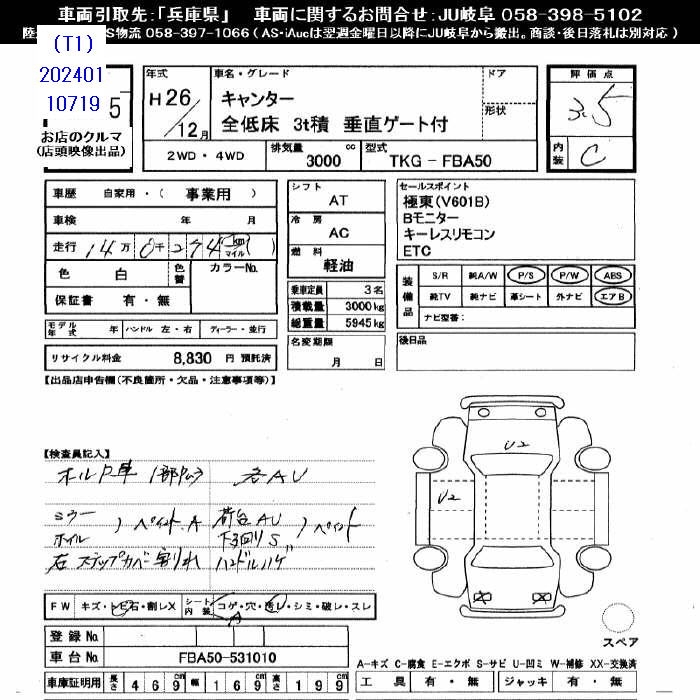 車両引取先:「兵庫県」 車両に関するお問合せ:JU岐阜 058-398-5102
陸 S物流 058-397-1066 ( AS・iAucは翌週金曜日以降にJU岐阜から搬出。商談・後日落札は別対応 )
(T1)
202401
10719 5
お店のクルマ
(店頭映像出品)
年式 車名・グレード ドア 評価点
H26 キャンター 形状 3.5
12月 全低床 3t積 垂直ゲート付
内装 C
2WD・4WD 排気量 3000 cc 型式 TKG-FBA50
車歴 自家用・( 事業用 )
車検 年 月
走行 14万0千274 km マイル ( )
色 白 色替 カラーNo.
保証書 有・無
モデル年式 年 ハンドル 左・右 ディーラー・並行
リサイクル料金 8,830 円 預託済
シフト AT
冷房 AC
燃料 軽油
乗車定員 3名
積載量 3000kg
総重量 5945kg
名変期限 月 日
セールスポイント
極東(V601B)
Bモニター
キーレスリモコン
ETC
装備品 S/R 純A/W P/S P/W ABS
純TV 純ナビ 革シート 外ナビ エアB
ナビ型番:
後日品
【出品店申告欄(不良箇所・欠品・注意事項等)】
【検査員記入】
各AU
ミラー
ホイル )ペイントA
荷台AU
下回りS )ペイント
右ステップカバー割れ ハンドルハゲ
U2
U2
FW キズ・トビ石・割レX シート内装 コゲ・穴・汚レ・シミ・破レ・スレ
A
登録No.
車台No. FBA50-531010
車庫証明用 長さ 469 幅 169 高さ 199
スペア
A-キズ C-腐食 E-エクボ S-サビ U-凹ミ W-補修 XX-交換済
工具 有・無 ジャッキ 有・無